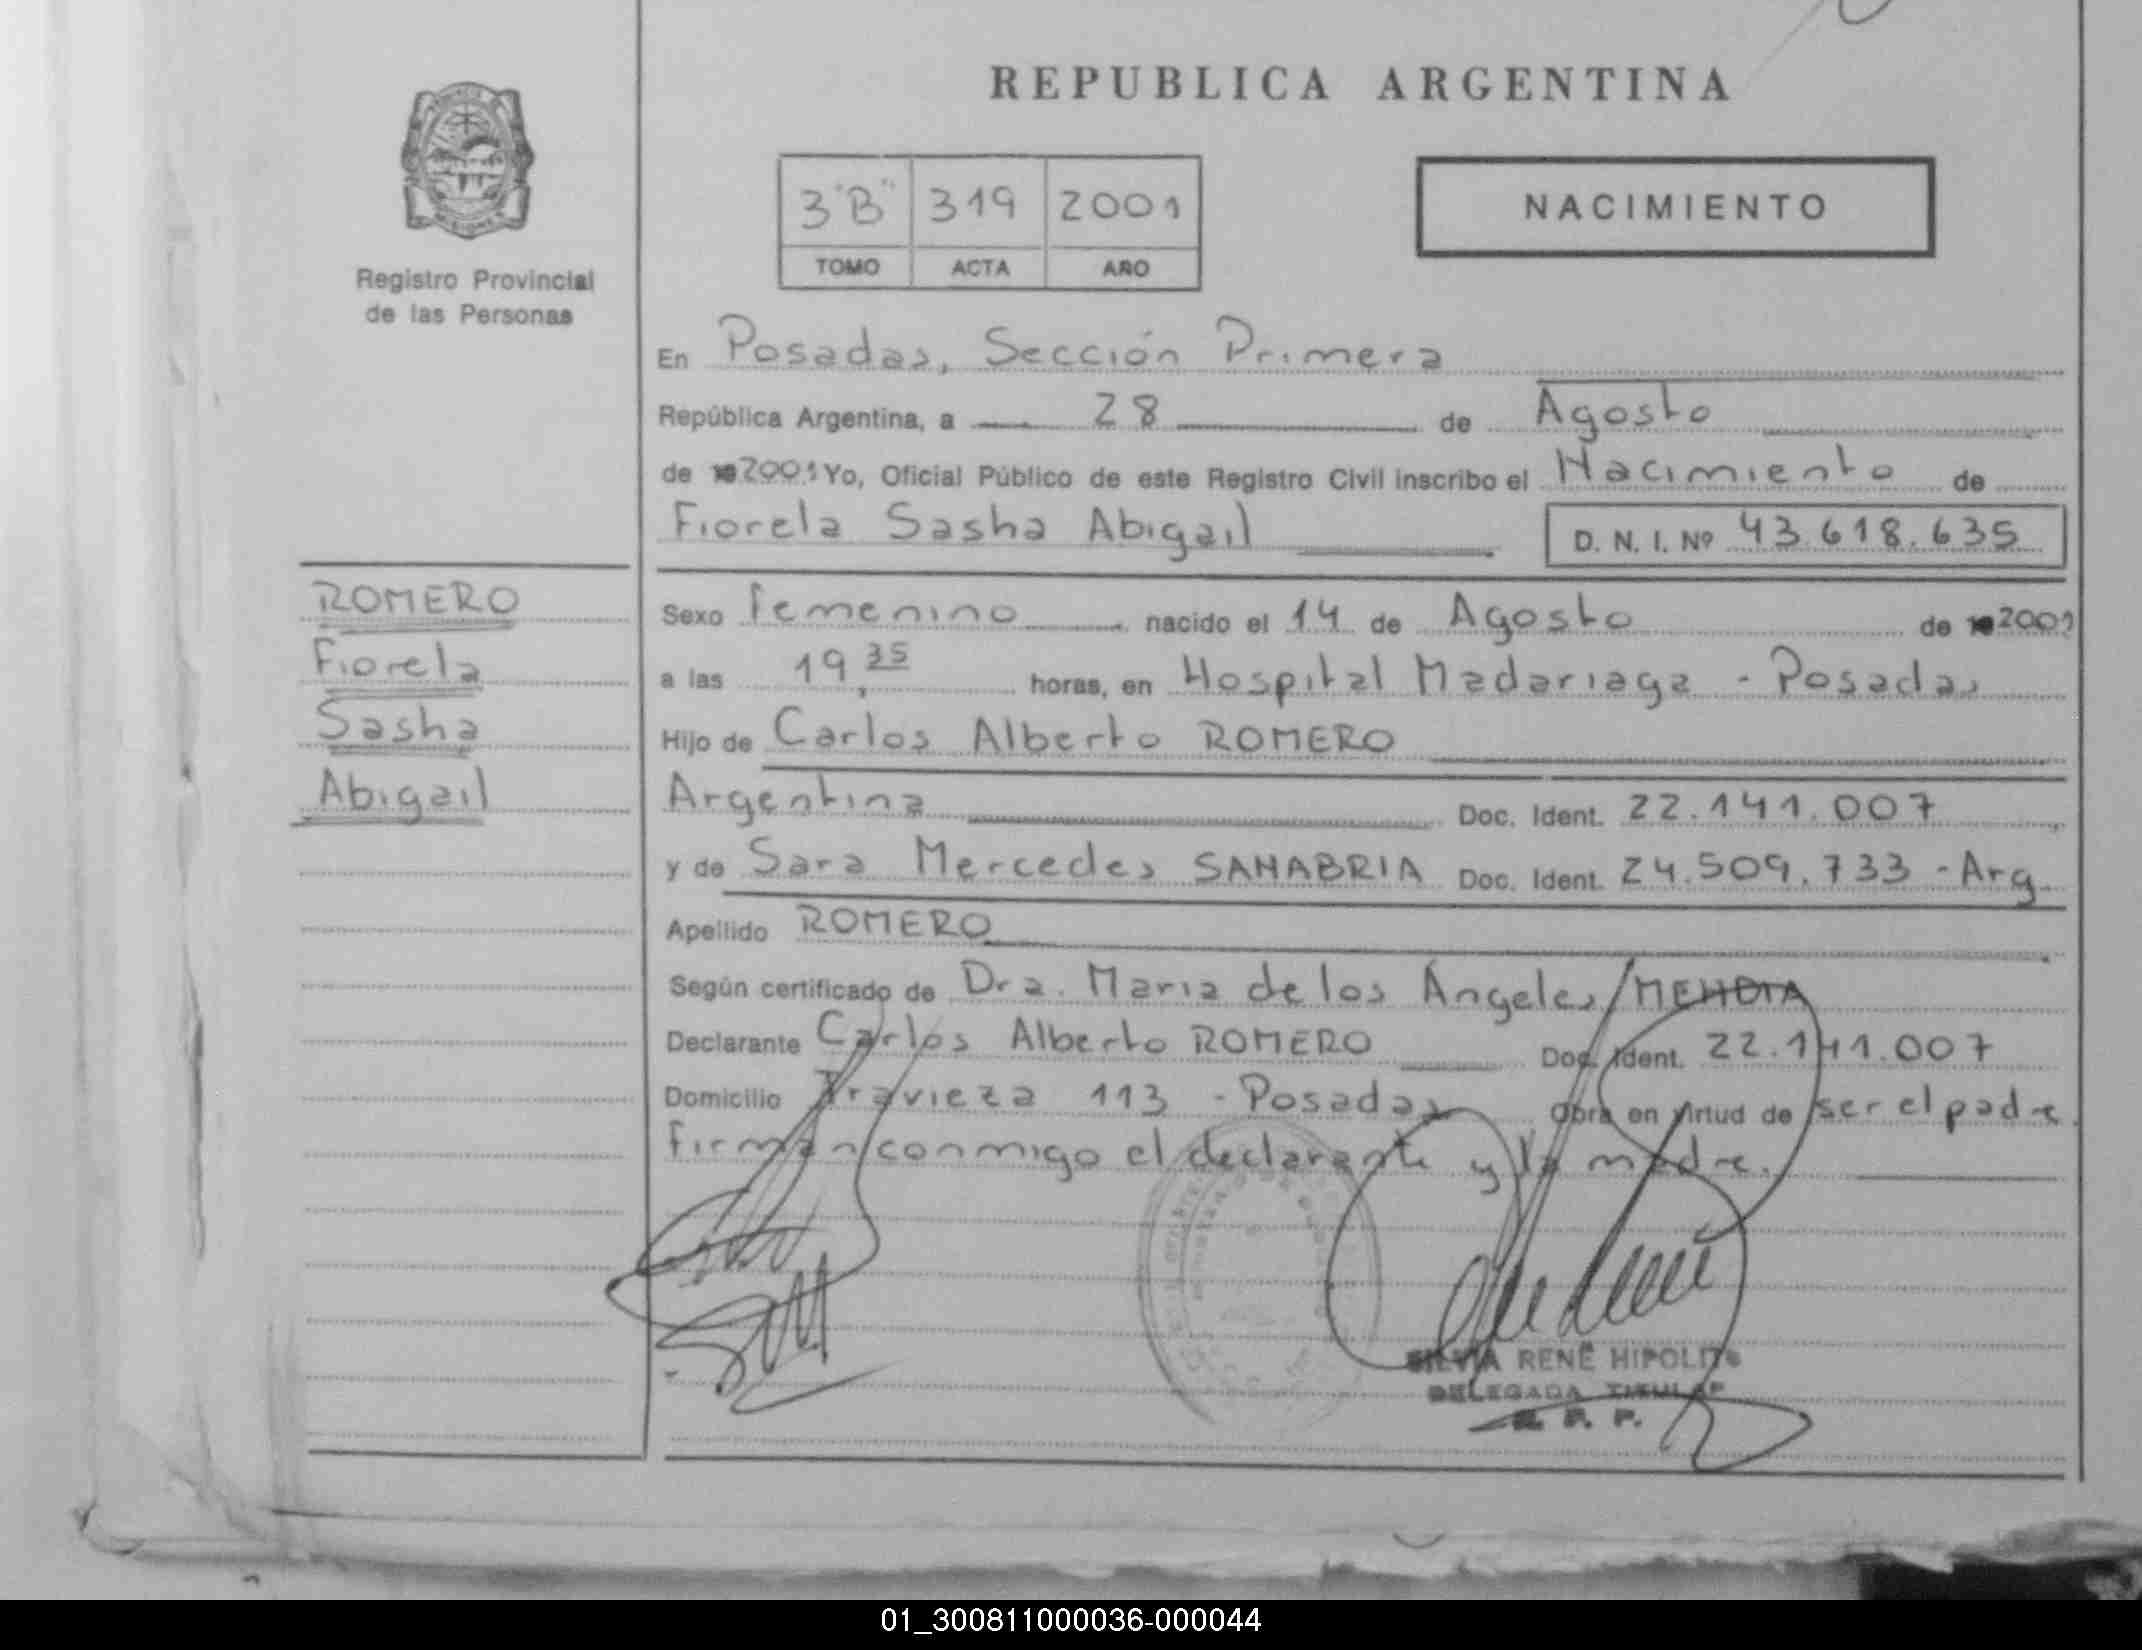 REPUBLICA ARGENTINA
3 "B" 319 2001
TOMO ACTA AÑO
NACIMIENTO
Registro Provincial
de las Personas
En Posadas, Sección Primera
República Argentina, a 28 de Agosto
de 2001 Yo, Oficial Público de este Registro Civil inscribo el Nacimiento de
Fiorela Sasha Abigail D. N. I. Nº 43.618.635
ROMERO
Fiorela
Sasha
Abigail
Sexo Femenino nacido el 14 de Agosto de 2001
a las 19,35 horas, en Hospital Madariaga - Posadas
Hijo de Carlos Alberto ROMERO
Argentina Doc. Ident. 22.141.007
y de Sara Mercedes SANABRIA Doc. Ident. 24.509.733 - Arg.
Apellido ROMERO
Según certificado de Dra. Maria de los Angeles
Declarante Carlos Alberto ROMERO Doc. Ident. 22.141.007
Domicilio Travieza 113 - Posadas Obra en virtud de ser el padre
Firman conmigo el declarante y la madre.
SILVIA RENÉ HIPOLITO
DELEGADA TITULAR
R. P. P.
01_300811000036-000044